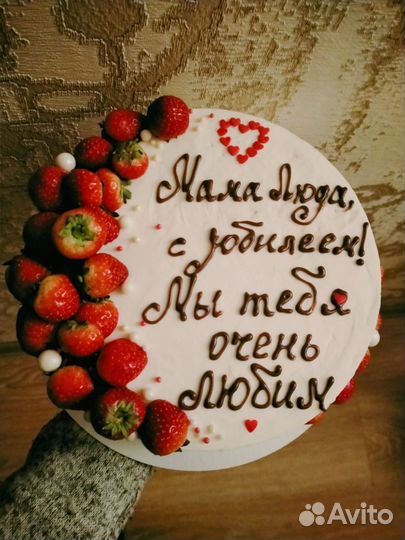 Мама Люда,
с юбилеем!
Мы тебя
очень
любим
Avito